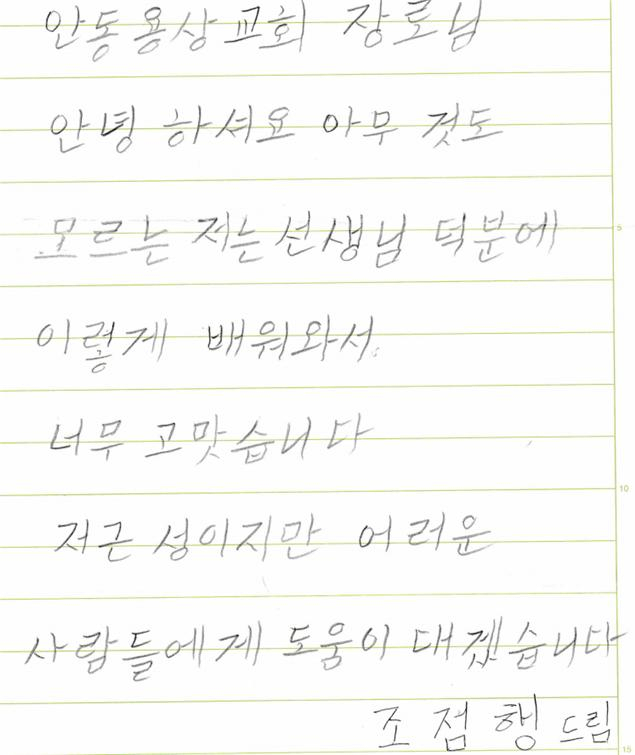 안동용상교회 장로님
안녕 하셔요 아무 것도
모르는 저는 선생님 덕분에
이렇게 배워와서
너무 고맛습니다
저근 성이지만 어러운
사람들에게 도움이 대겠습니다
조점행 드림
5
10
15